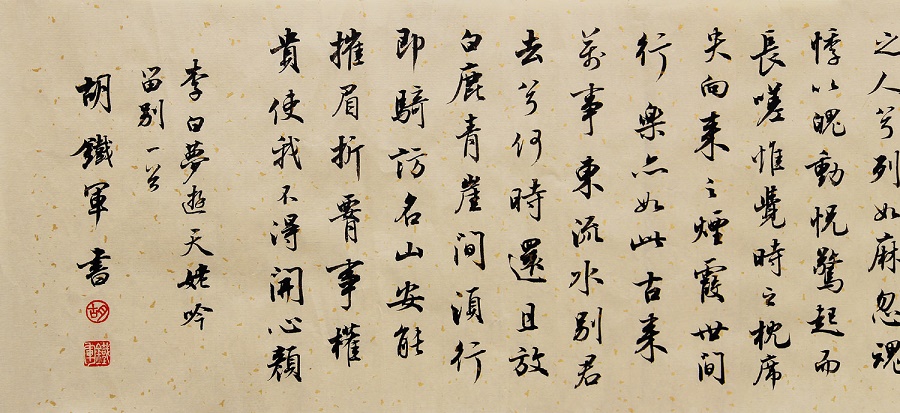 之人兮列如麻忽魂
悸以魄動怳驚起而
長嗟惟覺時之枕席
失向來之煙霞世間
行樂亦如此古來
萬事東流水別君
去兮何時還且放
白鹿青崖間須行
即騎訪名山安能
摧眉折腰事權
貴使我不得開心顏
李白夢遊天姥吟
留別一首
胡鐵軍書
胡
鐵軍